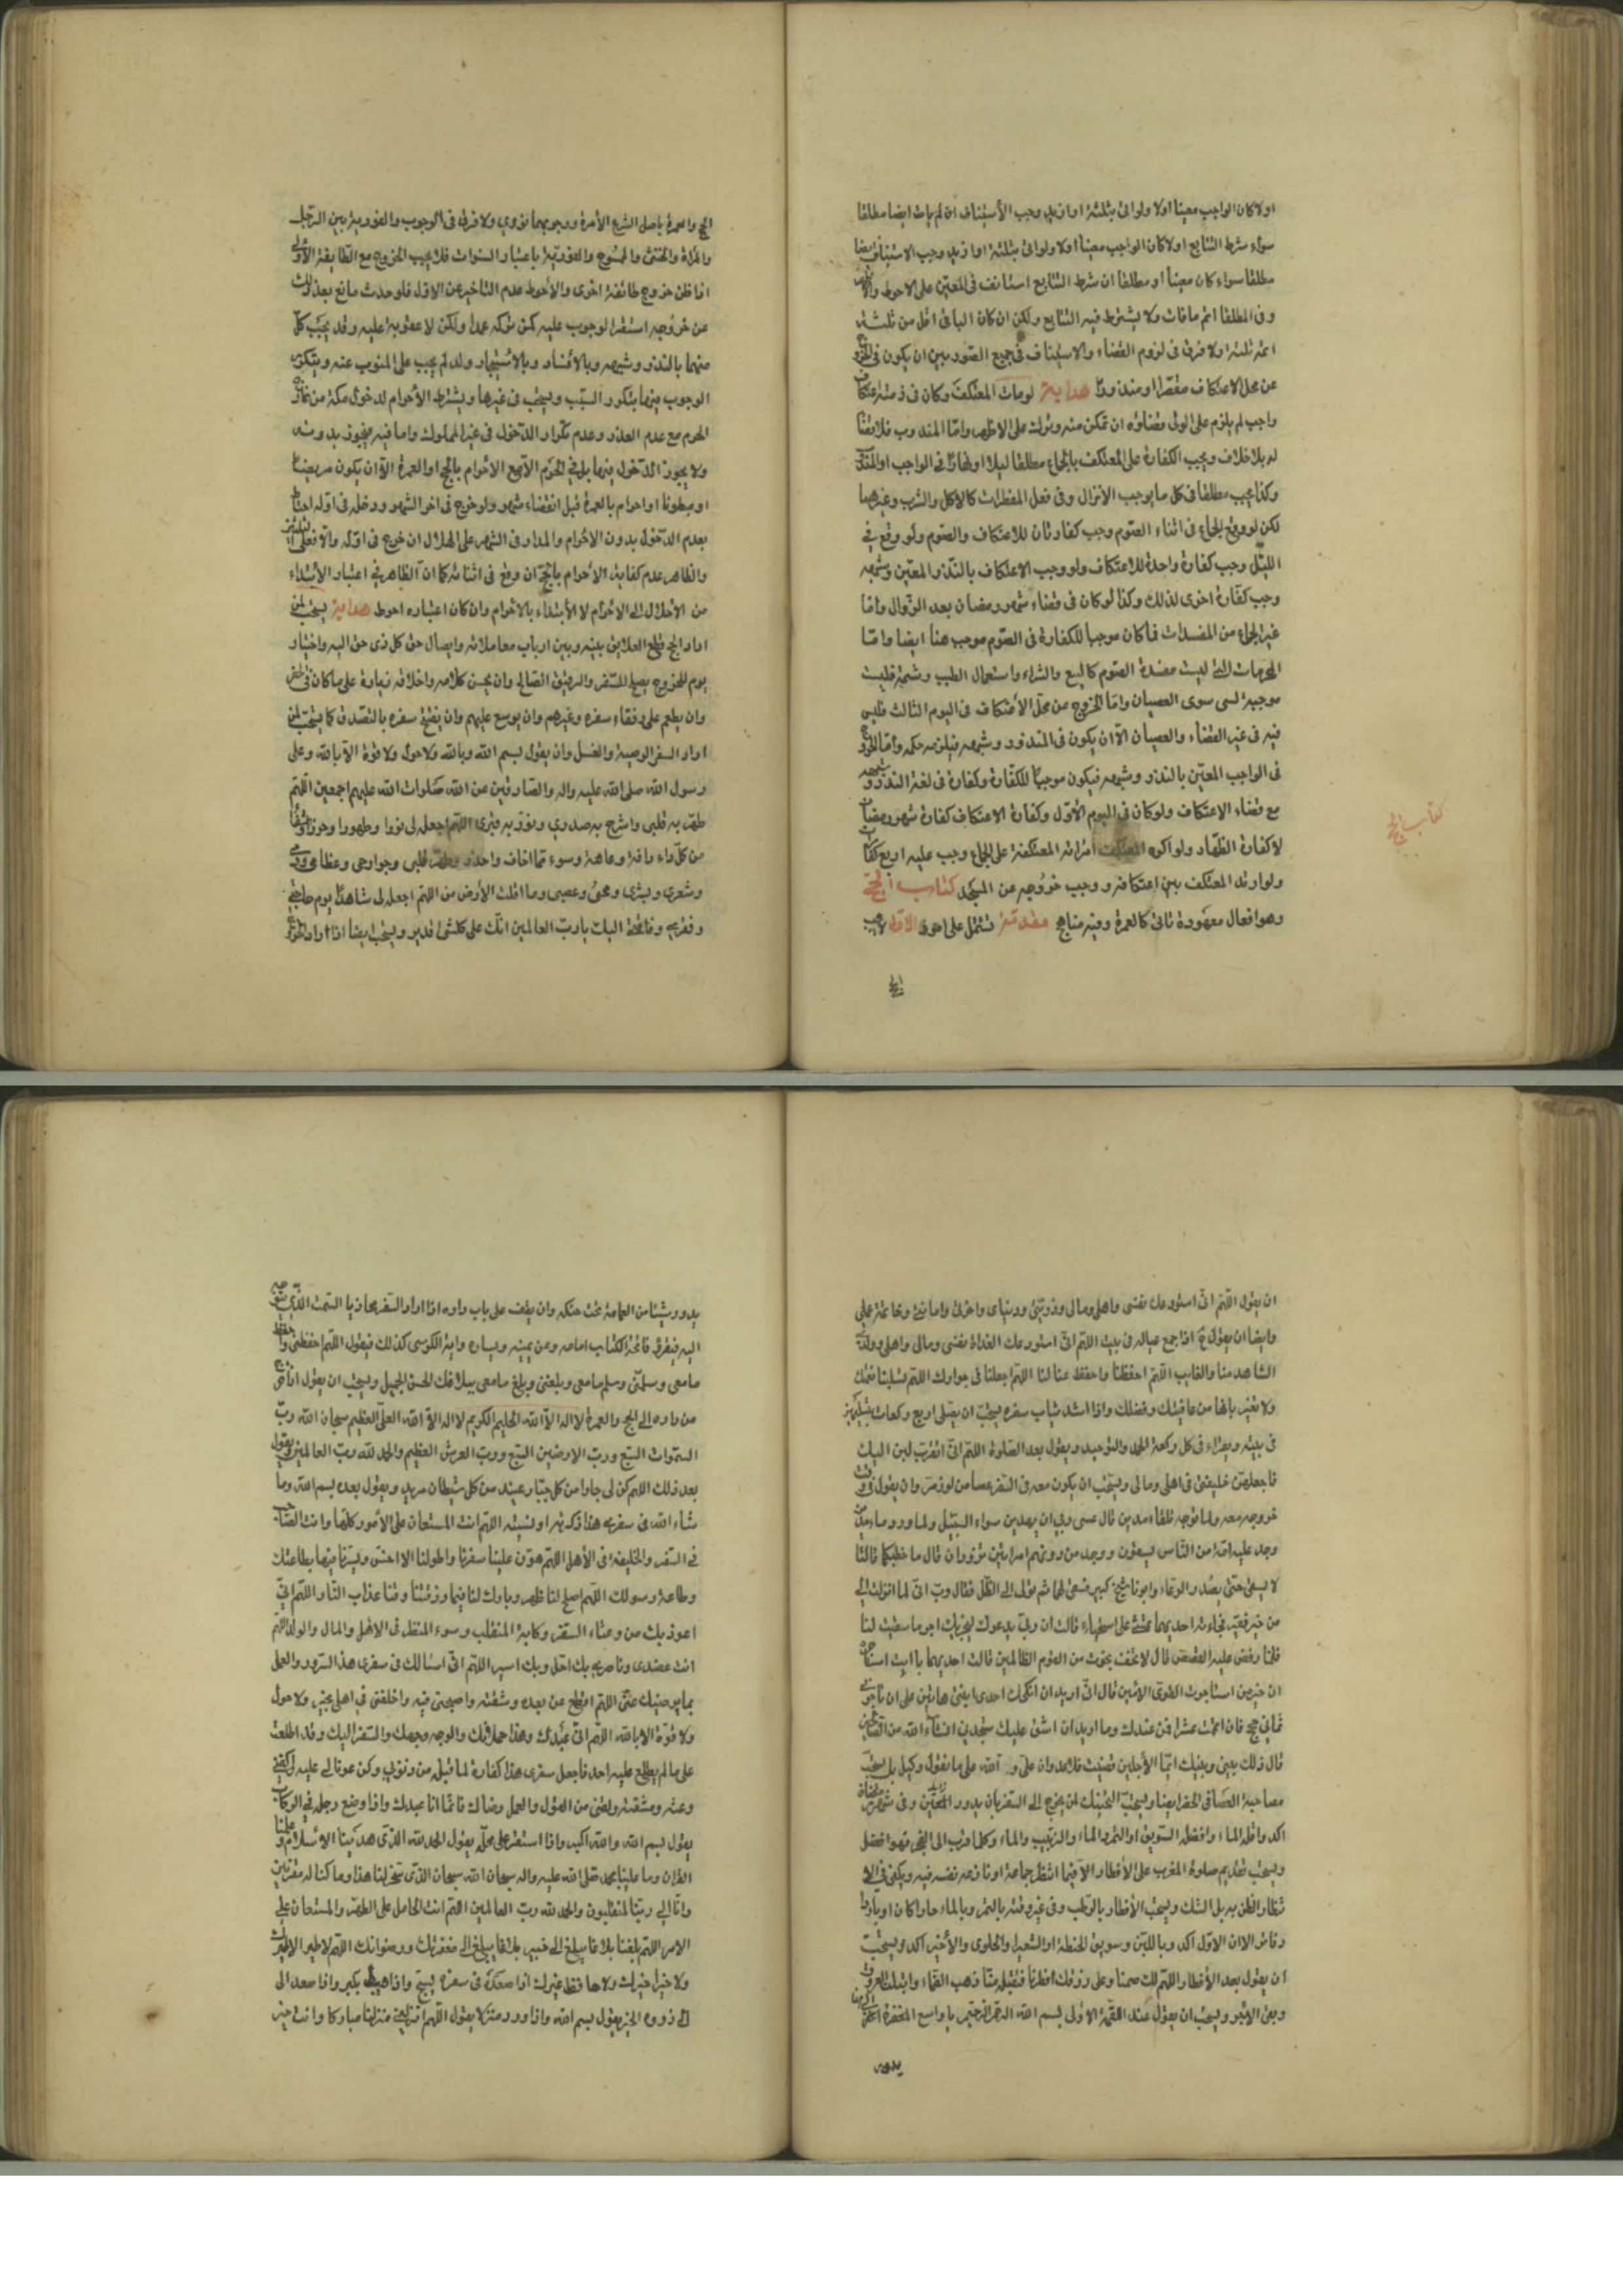 اولا كان الواجب معينا اولا ولو اتى بثلثة او ازيد وجب الأستيناف ان لم يات ايضا مطلقا
سواء شرط التتابع اولا كان الواجب معينا اولا ولو اتى بثلثة او ازيد وجب الاستيناف ايضا
مطلقا سواء كان معينا او مطلقا ان شرط التتابع استانف فى المعين على الاحوط والا
وفى المطلقا اتم ما فات ولا يشترط فيه التتابع ولكن ان كان الباقى اقل من ثلثة
اتمه ثلثة ولا فرق فى لزوم القضاء والاستيناف فى جميع الصور بين ان يكون فى الخروج
عن محل الاعتكاف مقصرا او معذورا هداية لو مات المعتكف وكان فى ذمته اعتكاف
واجب لم يلزم على الولى قضاؤه ان تمكن منه وترك على الاظهر واما المندوب فلا قضاء
له بلا خلاف ويجب الكفارة على المعتكف بالجماع مطلقا ليلا او نهارا فى الواجب او المندوب
وكذا يجب مطلقا فى كل ما يوجب الأنزال وفى فعل المفطرات كالاكل والشرب وغيرهما
لكن لو وقع الجماع فى اثناء الصوم وجب كفارتان للاعتكاف والصوم ولو وقع فى
الليل وجب كفارة واحدة للاعتكاف ولو وجب الاعتكاف بالنذر المعين وشبهه
وجب كفارة اخرى لذلك وكذا لو كان فى قضاء شهر رمضان بعد الزوال واما
غير الجماع من المفسدات فما كان موجبا للكفارة فى الصوم موجب هنا ايضا واما
المحرمات التى ليست مفسدة الصوم كالبيع والشراء واستعمال الطيب وشمه فليست
موجبة لشى سوى العصيان واما الخروج عن محل الأعتكاف فى اليوم الثالث فليس
فيه فى غير القضاء والعصيان الا ان يكون فى المنذور وشبهه فيلزمه حكمه واما الخروج
فى الواجب المعين بالنذر وشبهه فيكون موجبا للكفارة وكفارة فى لغة النذر وشبهه
مع قضاء الاعتكاف ولو كان فى اليوم الأول وكفارة الاعتكاف كفارة شهر رمضان
لا كفارة الظهار ولو اكره المعتكف امرأته المعتكفة على الجماع وجب عليه اربع كفارات
ولو ارتد المعتكف بين اعتكافه ووجب خروجه عن المسجد كتاب الحج
وهو افعال معهودة تاتى كالعمرة وفيه مناهج مقدمة تشتمل على امور الاول يجب
الحج
كتاب الحج
الحج والعمرة باصل الشرع الأمرة ووجوبهما فورى ولا فرق فى الوجوب والفورية بين الرجل
والمرأة والخنثى والممسوح والفورية باعتبار السنوات فلا يجب الخروج مع الطايفة الأولى
اذا ظن خروج طائفة اخرى والأحوط عدم التاخير عن الاول فلو حدث مانع بعد ذلك
عن خروجه استقر الوجوب عليه كمن تركه عمدا ولكن لا عقوبة عليه وقد يجب كل
منهما بالنذر وشبهه وبالافساد وبالاستيجار ولو لم يجب على المنوب عنه ويتكرر
الوجوب فيهما بتكرر السبب ويستحب فى غيرها ويشترط الأحرام لدخول مكة من خارج
الحرم مع عدم العذر وعدم تكرار الدخول فى غير المملوك واما فيه فيجوز بدونه
ولا يجوز الدخول فيها بل فى الحرم الا مع الأحرام بالحج او العمرة الا ان يكون مريضا
او مبطونا او احرام بالعمرة قبل انقضاء شهر ولو خرج فى اخر الشهر ودخل فى اوله
بعدم الدخول بدون الاحرام والمدار فى الشهر على الهلال ان خرج فى اوله والا فعلى
والظاهر عدم كفاية الأحرام بالحج ان وقع فى اثنائه كما ان الظاهر فى اعتبار الأبتداء
من الأحلال الى الاحرام لا الأبتداء بالاحرام وان كان اعتباره احوط هداية يستحب لمن
اراد الحج قطع العلايق بينه وبين ارباب معاملاته وايصال حق كل ذى حق اليه واختيار
يوم للخروج يصلح للسفر والرفيق الصالح وان يحسن كلامه واخلاقه زيادة على ما كان فى الحضر
وان يطعم على رفقاء سفره وغيرهم وان يوسع عليهم وان يفتتح سفره بالتصدق كما يستحب لمن
اراد السفر الوصية والغسل وان يقول بسم الله وبالله ولا حول ولا قوة الا بالله وعلى
رسول الله صلى الله عليه واله والصادقين عن الله صلوات الله عليهم اجمعين اللهم
طهر به قلبى واشرح به صدرى ونور به قبرى اللهم اجعله لى نورا وطهورا وحرزا وشفاء
من كل داء وافة وعاهة وسوء مما اخاف واحذر وطهر قلبى وجوارحى وعظامى ودمى
وشعرى وبشرى ومخى وعصبى وما اقلت الأرض من اللهم اجعله لى شاهدا يوم حاجتى
وفقرى وفاقتى اليك يا رب العالمين انك على كلشئ قدير ويستحب ايضا اذا اراد الخروج
ان يقول اللهم انى استودعك نفسى واهلى ومالى وذريتى ودنياى واخرتى وامانتى وخاتمة عملى
وايضا ان يقول اذا جمع عياله فى بيت اللهم انى استودعك الغداة نفسى ومالى واهلى وولدى
الشاهد منا والغايب اللهم احفظنا واحفظ علينا اللهم اجعلنا فى جوارك اللهم لا تسلبنا نعمتك
ولا تغير ما بنا من عافيتك وفضلك واذا اشد ثياب سفره يستحب ان يصلى اربع ركعات
فى بيته ويقراء فى كل ركعة الحمد والتوحيد ويقول بعد الصلوة اللهم انى اتقرب بهن اليك
فاجعلهن خليفتى فى اهلى ومالى ويستحب ان يكون معه فى السفر عصا من لوز مر وان يقول فى وقت
خروجه معه ولما توجه تلقاء مدين قال عسى ربى ان يهدين سواء السبيل ولما ورد ماء مدين
وجد عليه امة من الناس يسقون ووجد من دونهم امراتين تذودان قال ما خطبكما قالتا
لا نسقى حتى يصدر الرعاء وابونا شيخ كبير فسقى لهما ثم تولى الى الظل فقال رب انى لما انزلت الى
من خير فقير فجاءته احديهما تمشى على استحياء قالت ان ابى يدعوك ليجزيك اجر ما سقيت لنا
فلما وقص عليه القصص قال لا تخف نجوت من القوم الظالمين قالت احديهما يا ابت استأجره
ان خير من استاجرت القوى الامين قال انى اريد ان انكحك احدى ابنتى هاتين على ان تأجرنى
ثمانى حجج فان اتممت عشرا فمن عندك وما اريد ان اشق عليك ستجدنى انشاء الله من الصالحين
قال ذلك بينى وبينك ايما الأجلين قضيت فلا عدوان على والله على ما نقول وكيل بل يستحب
مصاحبة العصا فى الحضر ايضا ويستحب التحنك لمن يخرج الى السفر بان يدور
اكد واقله الماء وافضله السويق او التمر والماء والزبيب والماء وكلما قرب الى الفجر فهو افضل
ويستحب تقديم صلوة المغرب على الأفطار الا فيما انتظر جماعة او نازعه نفسه فيه ويكفى فى الا
نتظار الظن به بل الشك ويستحب الأفطار بالرطب وفى غير وقته بالتمر وبالماء حارا كان او باردا
وفاتر الا ان الاول اكد وباللبن وسويق الحنطة او الشعير والحلوى والأخير اكد ويستحب
ان يقول بعد الأفطار اللهم لك صمنا وعلى رزقك افطرنا فتقبله منا ذهب الظماء وابتلت العروق
وبقى الاجر ويستحب ان يقول عند اللقمة الاولى بسم الله الرحمن الرحيم يا واسع المغفرة اغفر لى
يدور
يدور شيئا من العمامة تحت حنكه وان يقف على باب داره اذا اراد السفر محاذيا السمت الذى يتوجه
اليه فيقرئ فاتحة الكتاب امامه وعن يمينه ويساره واية الكرسى كذلك فيقول اللهم احفظنى واحفظ
ما معى وسلمنى وسلم ما معى وبلغنى وبلغ ما معى ببلاغك الحسن الجميل ويستحب ان يقول اذا خرج
من داره الى الحج والعمرة لا اله الا الله الحليم الكريم لا اله الا الله العلى العظيم سبحان الله رب
السموات السبع ورب الارضين السبع ورب العرش العظيم والحمد لله رب العالمين ويقول
بعد ذلك اللهم كن لى جارا من كل جبار عنيد من كل شيطان مريد ويقول بعده بسم الله وما
شاء الله فى سفرى هذا ذكرته او نسيته اللهم انت المستعان على الأمور كلها وانت الصاحب
فى السفر والخليفة فى الأهل اللهم هون علينا سفرنا واطو لنا الا وسيرنا فيها بطاعتك
وطاعة رسولك اللهم اصلح لنا ظهرنا وبارك لنا فيما رزقتنا وقنا عذاب النار اللهم انى
اعوذ بك من وعثاء السفر وكابة المنقلب وسوء المنظر فى الاهل والمال والولد اللهم
انت عضدى وناصرى بك احل وبك اسير اللهم انى اسئالك فى سفرى هذا السرور والعمل
بما يرضيك عنى اللهم اقطع عن بعده ومشقته واصحبنى فيه واخلفنى فى اهلى بخير ولا حول
ولا قوة الا بالله اللهم انى عبدك وهذا حملانك والوجه وجهك والسفر اليك وقد اطلعت
على ما لم يطلع عليه احد فاجعل سفرى هذا كفارة لما قبله من ذنوبى وكن عونا لى عليه واكفنى
وعثه ومشقته ولقنى من القول والعمل رضاك فانما انا عبدك واذا وضع رجله فى الركاب
يقول بسم الله والله اكبر واذا استقر على محله يقول الحمد لله الذى هدينا الاسلام وعلمنا
القران ومن علينا بمحمد صلى الله عليه واله سبحان الله سبحان الذى سخر لنا هذا وما كنا له مقرنين
وانا الى ربنا لمنقلبون والحمد لله رب العالمين اللهم انت الحامل على الظهر والمستعان على
الامر اللهم بلغنا بلاغا يبلغ الى خير بلاغا يبلغ الى مغفرتك ورضوانك اللهم لا طير الا طيرك
ولا خير الا خيرك ولا حافظ غيرك اذا صعد فى سفره يسبح واذا هبط يكبر واذا صعد الى
ذروة الجسر يقول بسم الله واذا ورد منزلا يقول اللهم انزلنى منزلا مباركا وانت خير